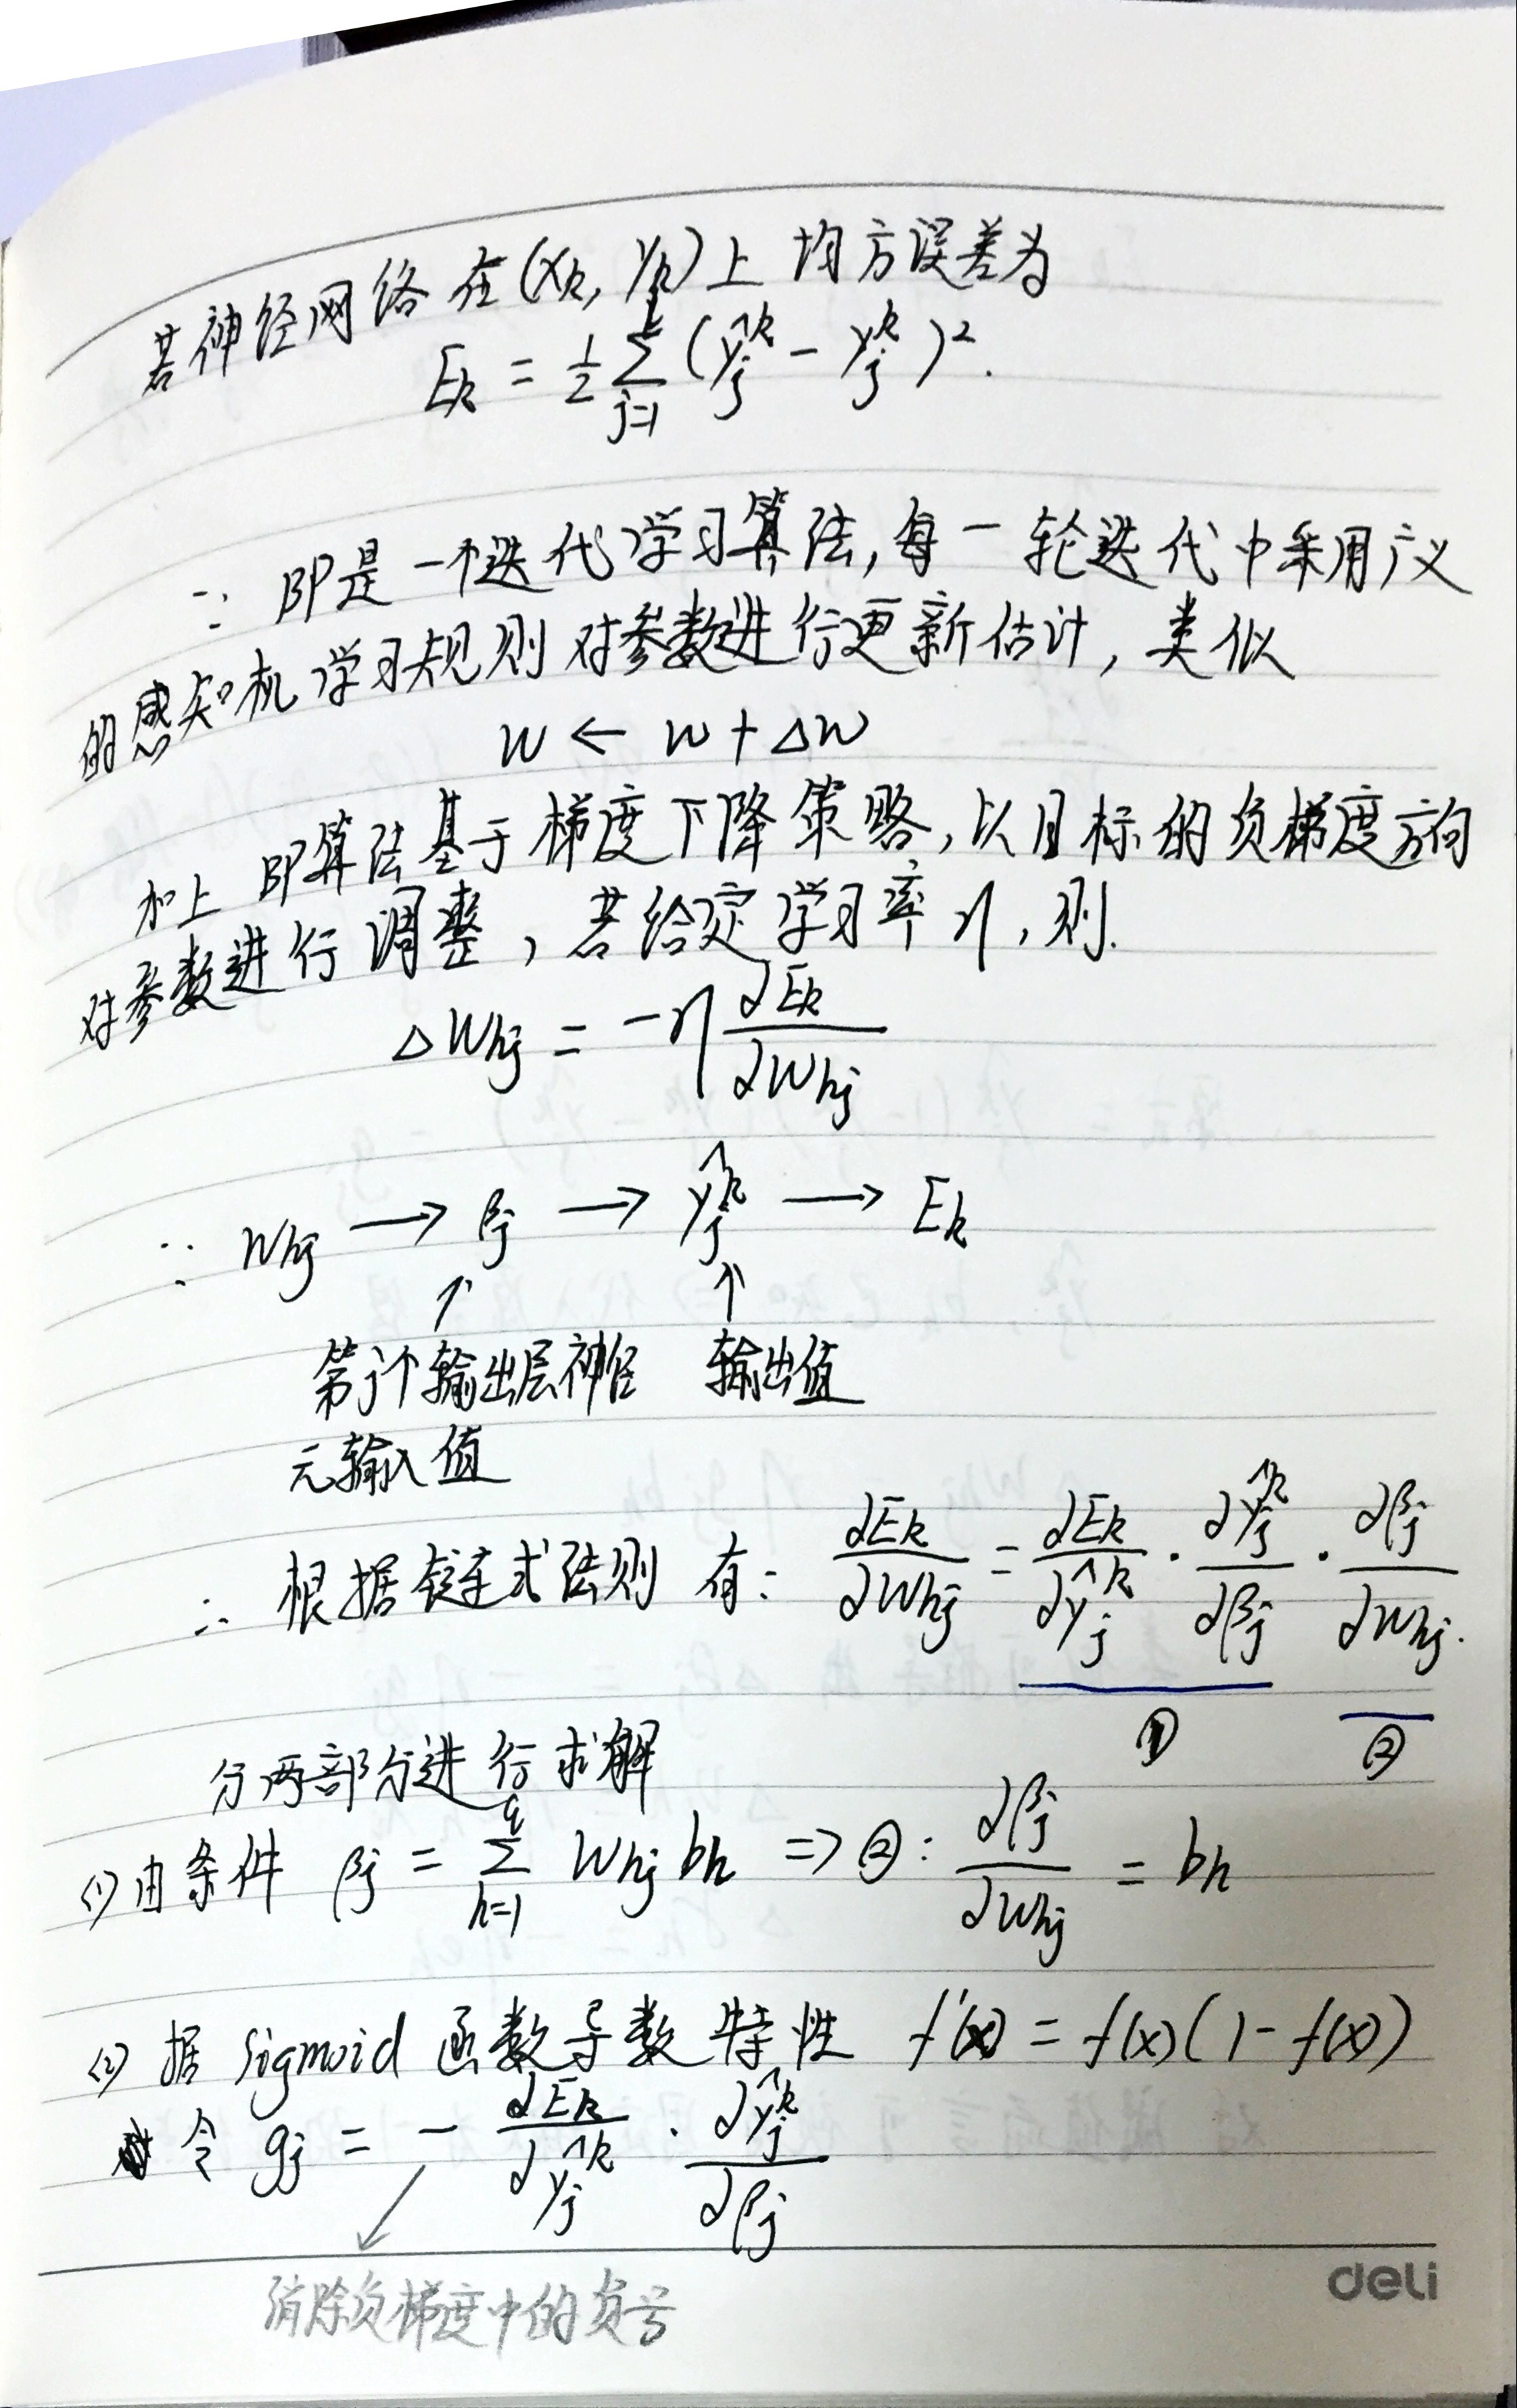 若神经网络在(xk, yk)上均方误差为
Ek = 1/2 Σ_{j=1}^{l} (ŷ_j^k - y_j^k)².
∵ BP是一个迭代学习算法,每一轮迭代中采用广义
的感知机学习规则对参数进行更新估计,类似
w ← w + Δw
加上BP算法基于梯度下降策略,以目标的负梯度方向
对参数进行调整,若给定学习率η,则.
Δwhj = -η ∂Ek/∂whj
∵ whj → βj → ŷ_j^k → Ek
↑ ↑
第j个输出层神经 输出值
元输入值
∴ 根据链式法则有: ∂Ek/∂whj = ∂Ek/∂ŷ_j^k · ∂ŷ_j^k/∂βj · ∂βj/∂whj.
① ②
分两部分进行求解
(1) 由条件 βj = Σ_{h=1}^{q} whj bh => ②: ∂βj/∂whj = bh
(2) 据 Sigmoid 函数导数特性 f'(x) = f(x)(1-f(x))
令 gj = - ∂Ek/∂ŷ_j^k · ∂ŷ_j^k/∂βj
消除负梯度中的负号
deli